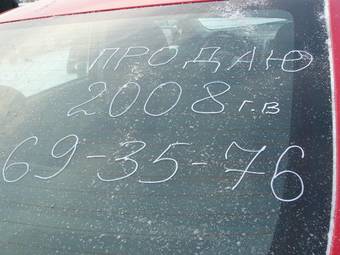 ПРОДАЮ
2008 г.в
69-35-76